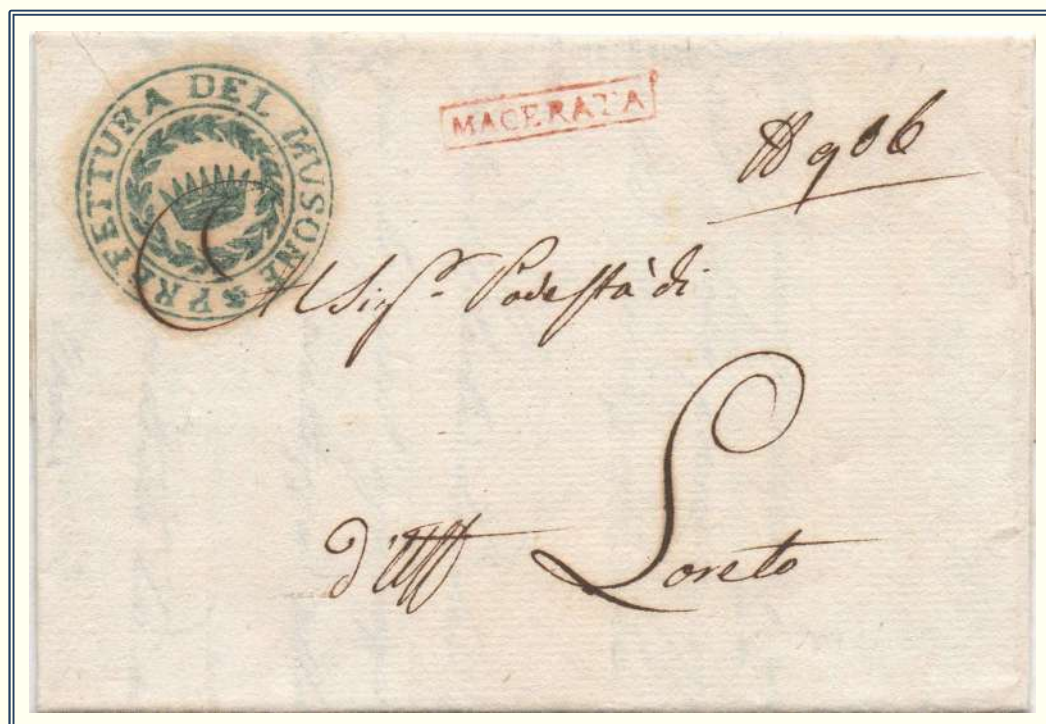 PREFETTURA DEL MUSONE
MACERATA
N 906
Al Sig.r Podestà di
Loreto
d'Uff